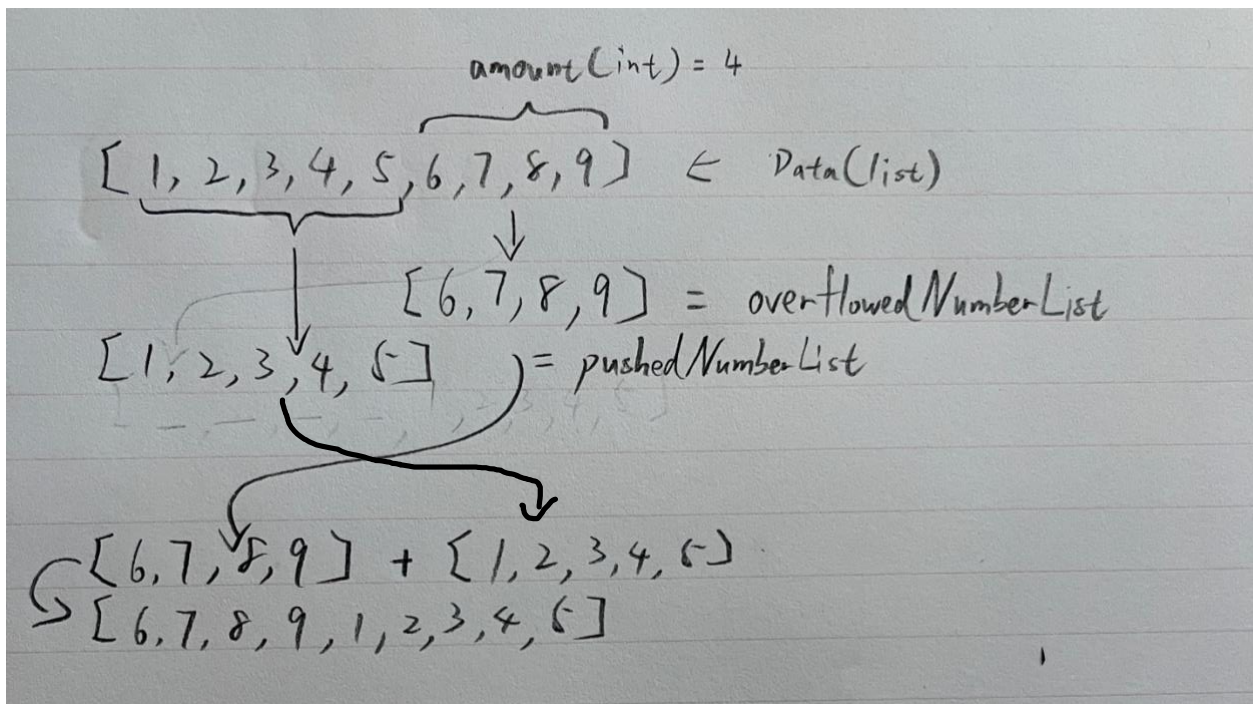 amount(int) = 4
[1, 2, 3, 4, 5, 6, 7, 8, 9] ← Data(list)
[6, 7, 8, 9] = overflowedNumberList
[1, 2, 3, 4, 5] = pushedNumberList
[6, 7, 8, 9] + [1, 2, 3, 4, 5]
[6, 7, 8, 9, 1, 2, 3, 4, 5]